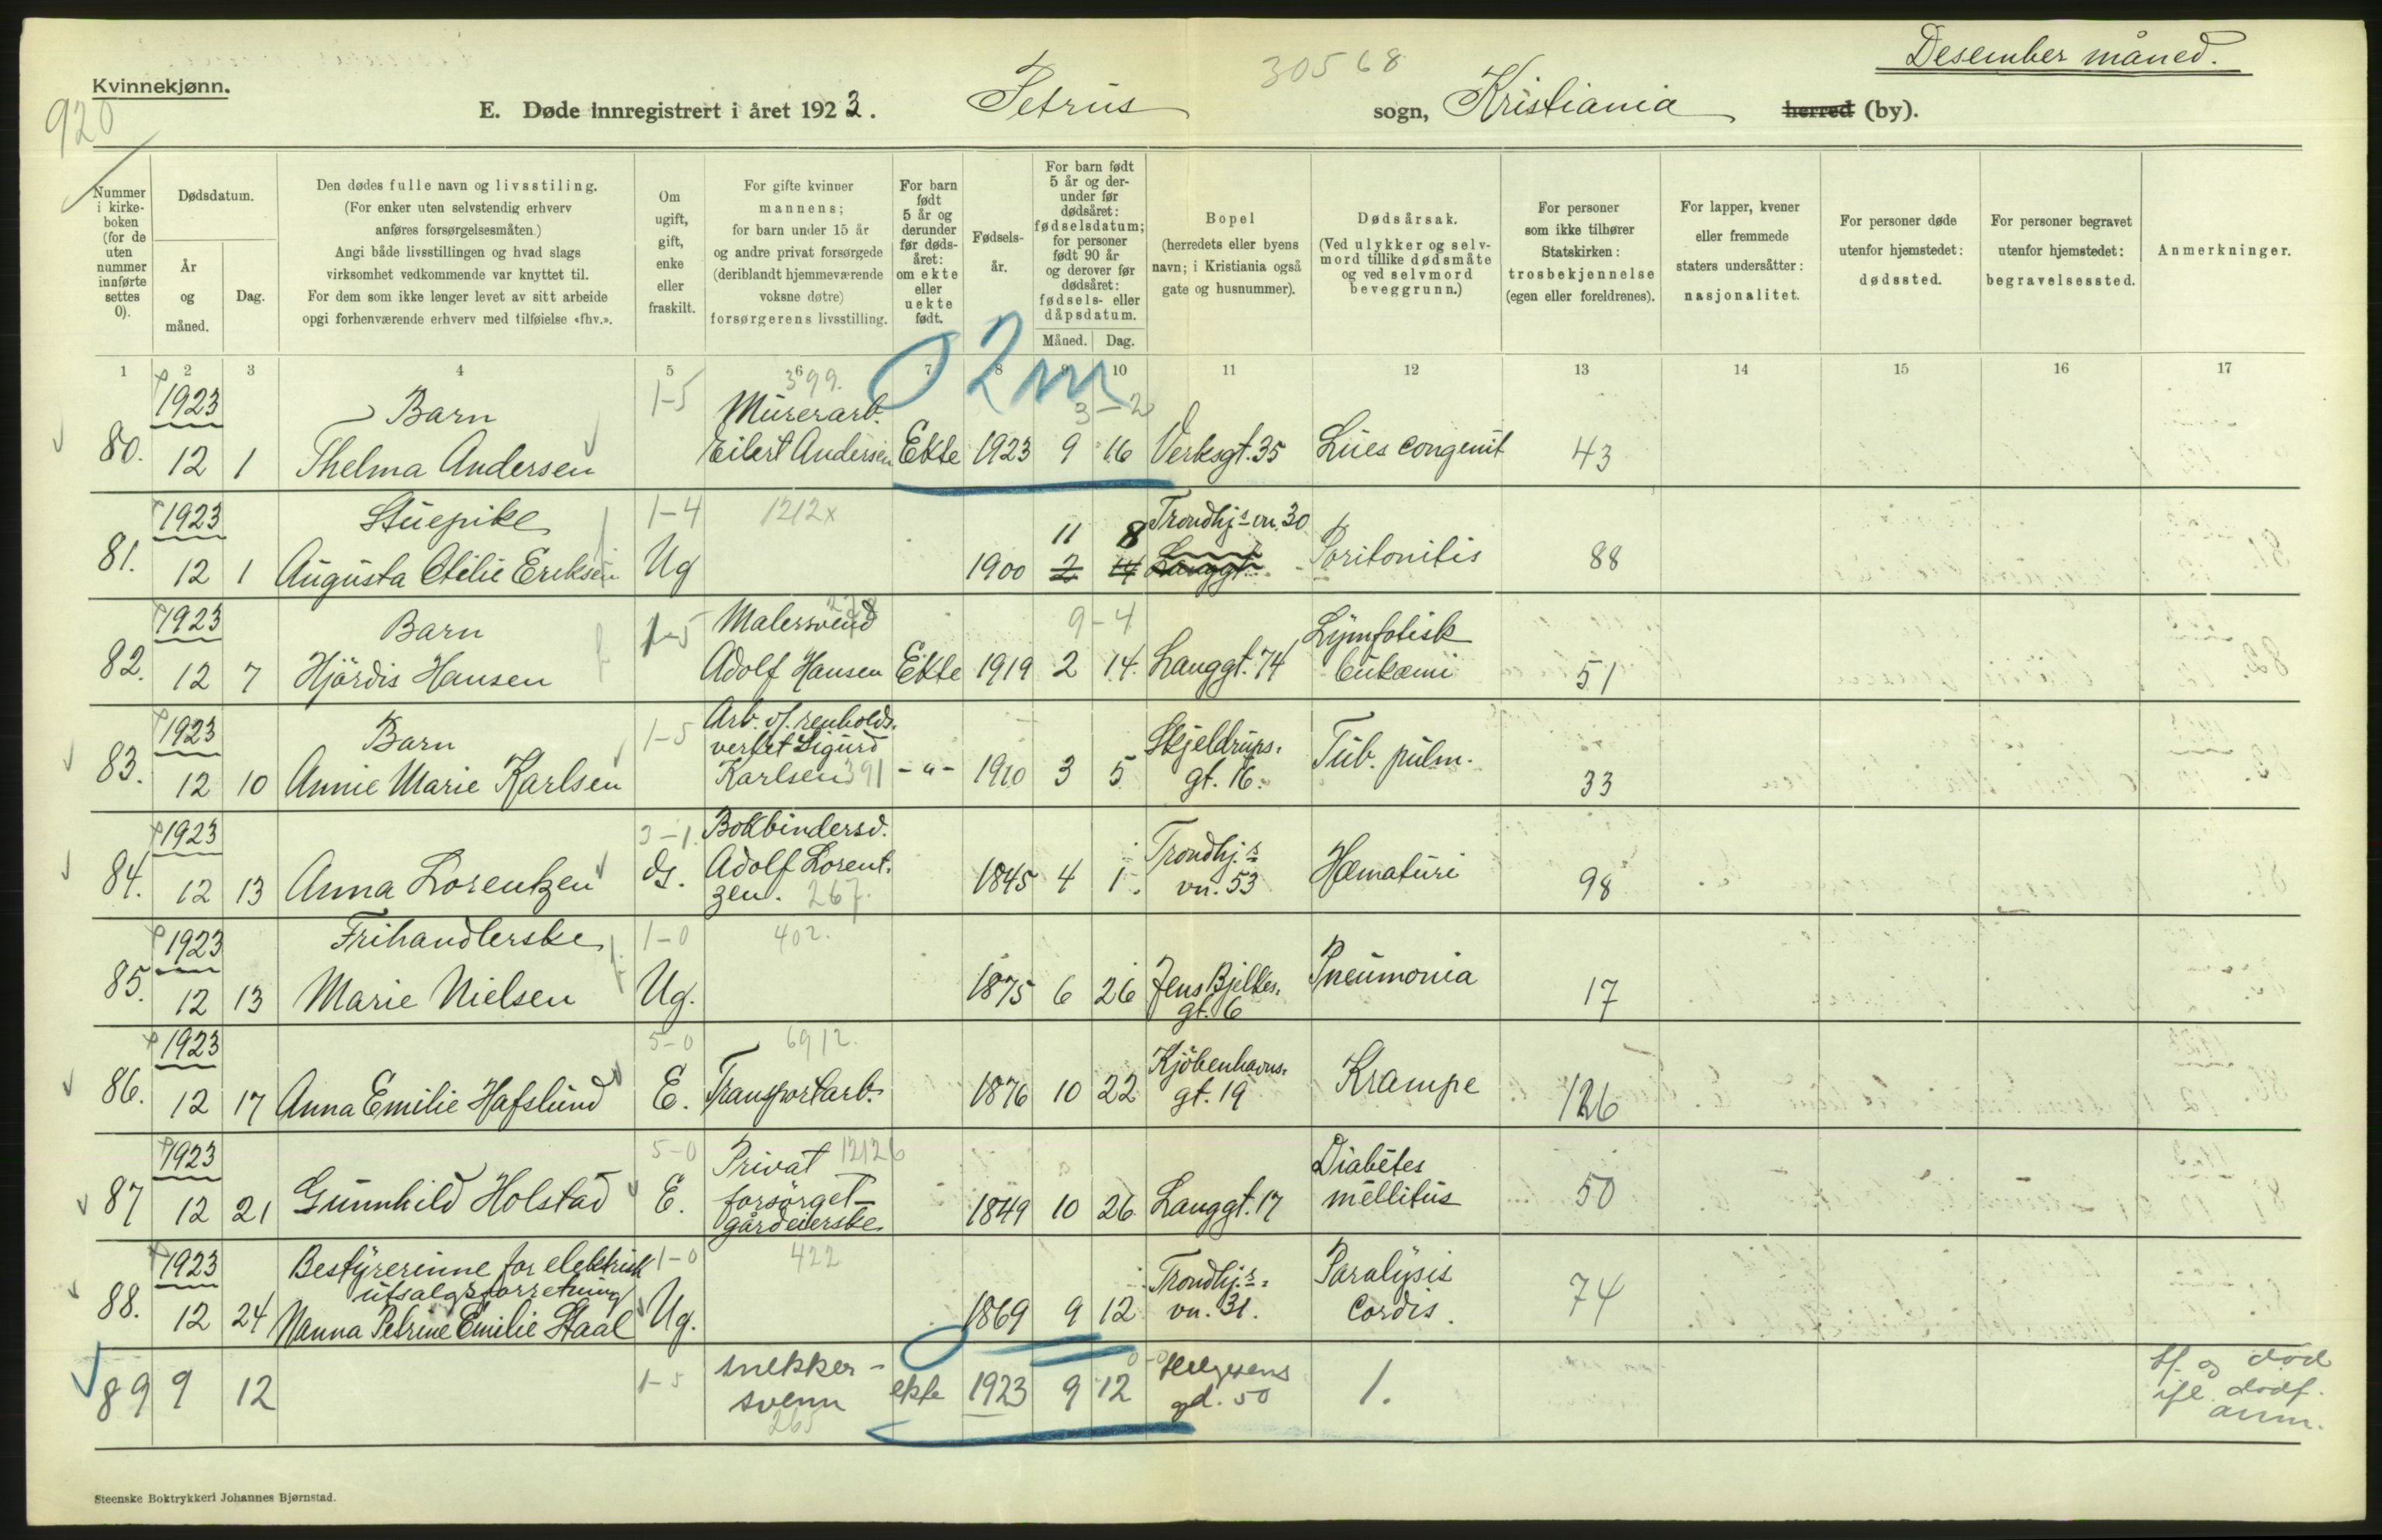 Desember måned.
Kvinnekjønn.
920
30568
E. Døde innregistrert i året 1923. Petrus sogn, Kristiania herred (by).
Nummer i kirkeboken (for de uten nummer innførte settes 0).
Dødsdatum.
År og måned.
Dag.
Den dødes fulle navn og livsstiling.
(For enker uten selvstendig erhverv
anføres forsørgelsesmåten.)
Angi både livsstillingen og hvad slags
virksomhet vedkommende var knyttet til.
For dem som ikke lenger levet av sitt arbeide
opgi forhenværende erhverv med tilføielse «fhv.».
Om ugift, gift, enke eller fraskilt.
For gifte kvinner
mannens;
for barn under 15 år
og andre privat forsørgede
(deriblandt hjemmeværende
voksne døtre)
forsørgerens livsstilling.
For barn født 5 år og derunder før dødsåret: om ekte eller uekte født.
Fødselsår.
For barn født 5 år og derunder før dødsåret: fødselsdatum; for personer født 90 år og derover før dødsåret: fødsels- eller dåpsdatum.
Måned. Dag.
Bopel
(herredets eller byens
navn; i Kristiania også
gate og husnummer).
Dødsårsak.
(Ved ulykker og selvmord tillike dødsmåte og ved selvmord beveggrunn.)
For personer
som ikke tilhører
Statskirken:
trosbekjennelse
(egen eller foreldrenes).
For lapper, kvener
eller fremmede
staters undersåtter:
nasjonalitet.
For personer døde
utenfor hjemstedet:
dødssted.
For personer begravet
utenfor hjemstedet:
begravelsessted.
Anmerkninger.
1 2 3 4 5 6 7 8 9 10 11 12 13 14 15 16 17
0 2 m
1923 Barn 1-5 399. Murerarb. 3-2
80. 12 1 Thelma Andersen Eilert Andersen Ekte 1923 9 16 Verksgt. 35 Lues congenit 43
1923 Stuepike 1-4 1212x 11 8 Trondhj.s vn. 30
81. 12 1 Augusta Otilie Eriksen Ug 1900 2 14 Langgt. Poritonitis 88
1923 Barn 1-5 Malersvend 9-4 Lymfotisk
82. 12 7 Hjördis Hansen Adolf Hansen Ekte 1919 2 14. Langgt. 74 leukæmi 51
1923 Barn 1-5 Arb. v/. renholds-
verket Sigurd Skjeldrups-
83. 12 10 Annie Marie Karlsen Karlsen 391 -"- 1920 3 5 gt. 16. Tub. pulm. 33
1923 3-1. Bokbindersv.
84. 12 13 Anna Lorentzen G. Adolf Lorent- 1845 4 1. Trondhj.s Hæmaturi 98
zen. 267. vn. 53
1923 Frihandlerske 1-0 402.
85. 12 13 Marie Nielsen Ug. 1875 6 26 Jens Bjelkes- Pneumonia 17
gt. 6
1923 5-0 6912. Kjöbenhavns-
86. 12 17 Anna Emilie Hafslund E. Transportarb. 1876 10 22 gt. 19 Krampe 126
1923 5-0 Privat 12126 Diabetes
87 12 21 Gunnhild Holstad E. forsörget- 1849 10 26 Langgt. 17 mellitus 50
gårdeierske
1923 Bestyrerinne for elektrisk 1-0 422
utsalgsforretning Trondhj.s- Paralysis
88. 12 24 Nanna Petrine Emilie Staal Ug. 1869 9 12 vn. 31. Cordis. 74
1-5 snekker- Helgesens
89 9 12 svenn ekte 1923 9 12 gd. 50 1.
265
død
Steenske Boktrykkeri Johannes Bjørnstad.